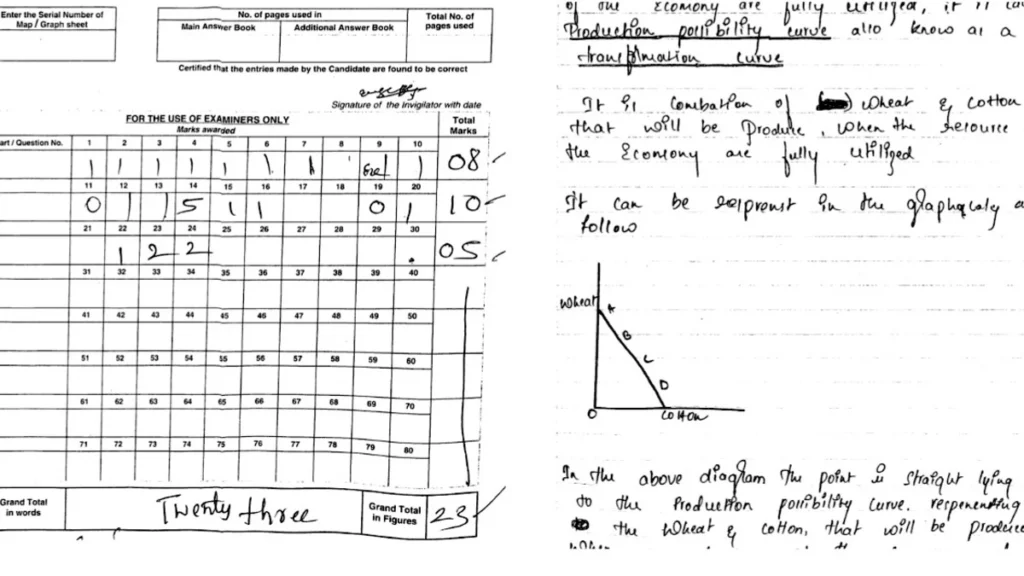 Enter the Serial Number of
Map / Graph sheet
No. of pages used in
Main Answer Book
Additional Answer Book
Total No. of
pages used
Certified that the entries made by the Candidate are found to be correct
Signature of the Invigilator with date
FOR THE USE OF EXAMINERS ONLY
Marks awarded
Total
Marks
art / Question No. 1 2 3 4 5 6 7 8 9 10
1 1 1 1 1 1 1 1 1 08
11 12 13 14 15 16 17 18 19 20
0 1 1 5 1 1 0 1 10
21 22 23 24 25 26 27 28 29 30
1 2 2 05
31 32 33 34 35 36 37 38 39 40
41 42 43 44 45 46 47 48 49 50
51 52 53 54 55 56 57 58 59 60
61 62 63 64 65 66 67 68 69 70
71 72 73 74 75 76 77 78 79 80
Grand Total
in words
Twenty three
Grand Total
in Figures
23
of the Economy are fully utilized, it is
Production possibility curve also know as a
curve
It is of Wheat & Cotton
that will be Produce, when the resource
the Economy are fully utilized
It can be in the as
follow
Wheat
A
B
C
D
O
Cotton
In the above diagram the point is straight lying
to the Production possibility curve.
the Wheat & cotton, that will be produce